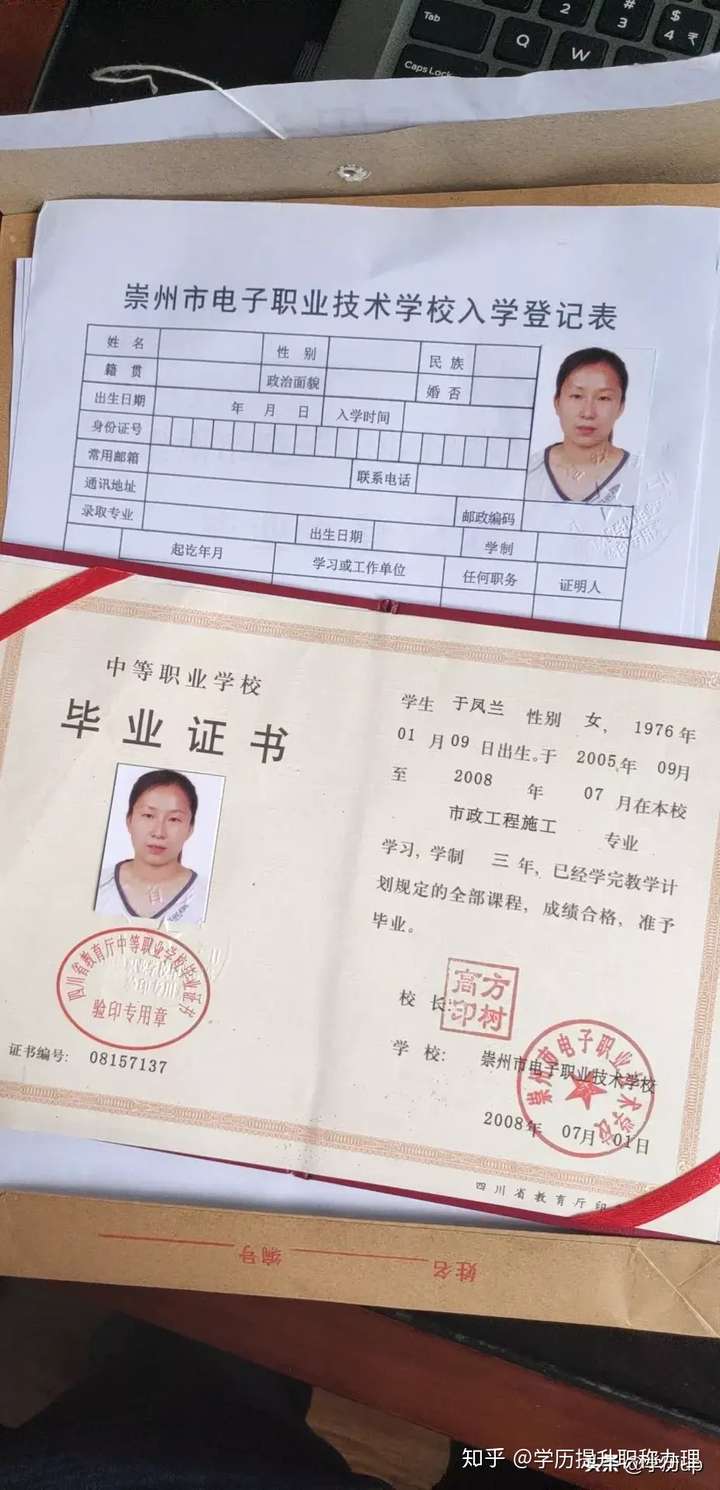 Tab
Q
W
2
#
3
$
4 ₹
Caps Lock
崇州市电子职业技术学校入学登记表
姓 名 性 别 民 族
籍 贯 政治面貌 婚 否
出生日期 年 月 日 入学时间
身份证号
常用邮箱 联系电话
通讯地址 邮政编码
录取专业 出生日期 学制
起讫年月 学习或工作单位 任何职务 证明人
中等职业学校
毕业证书
四川省教育厅中等职业学校毕业证书
验印专用章
证书编号: 08157137
学生 于凤兰 性别 女, 1976 年
01 月 09 日出生。于 2005 年 09 月
至 2008 年 07 月在本校
市政工程施工 专业
学习, 学制 三 年, 已经学完教学计
划规定的全部课程, 成绩合格, 准予
毕业。
校 长:
高方
印树
学 校: 崇州市电子职业技术学校
崇州市电子职业技术学校
2008 年 07 月 01 日
四川省教育厅印
姓名 编号
知乎 @学历提升职称办理
头条